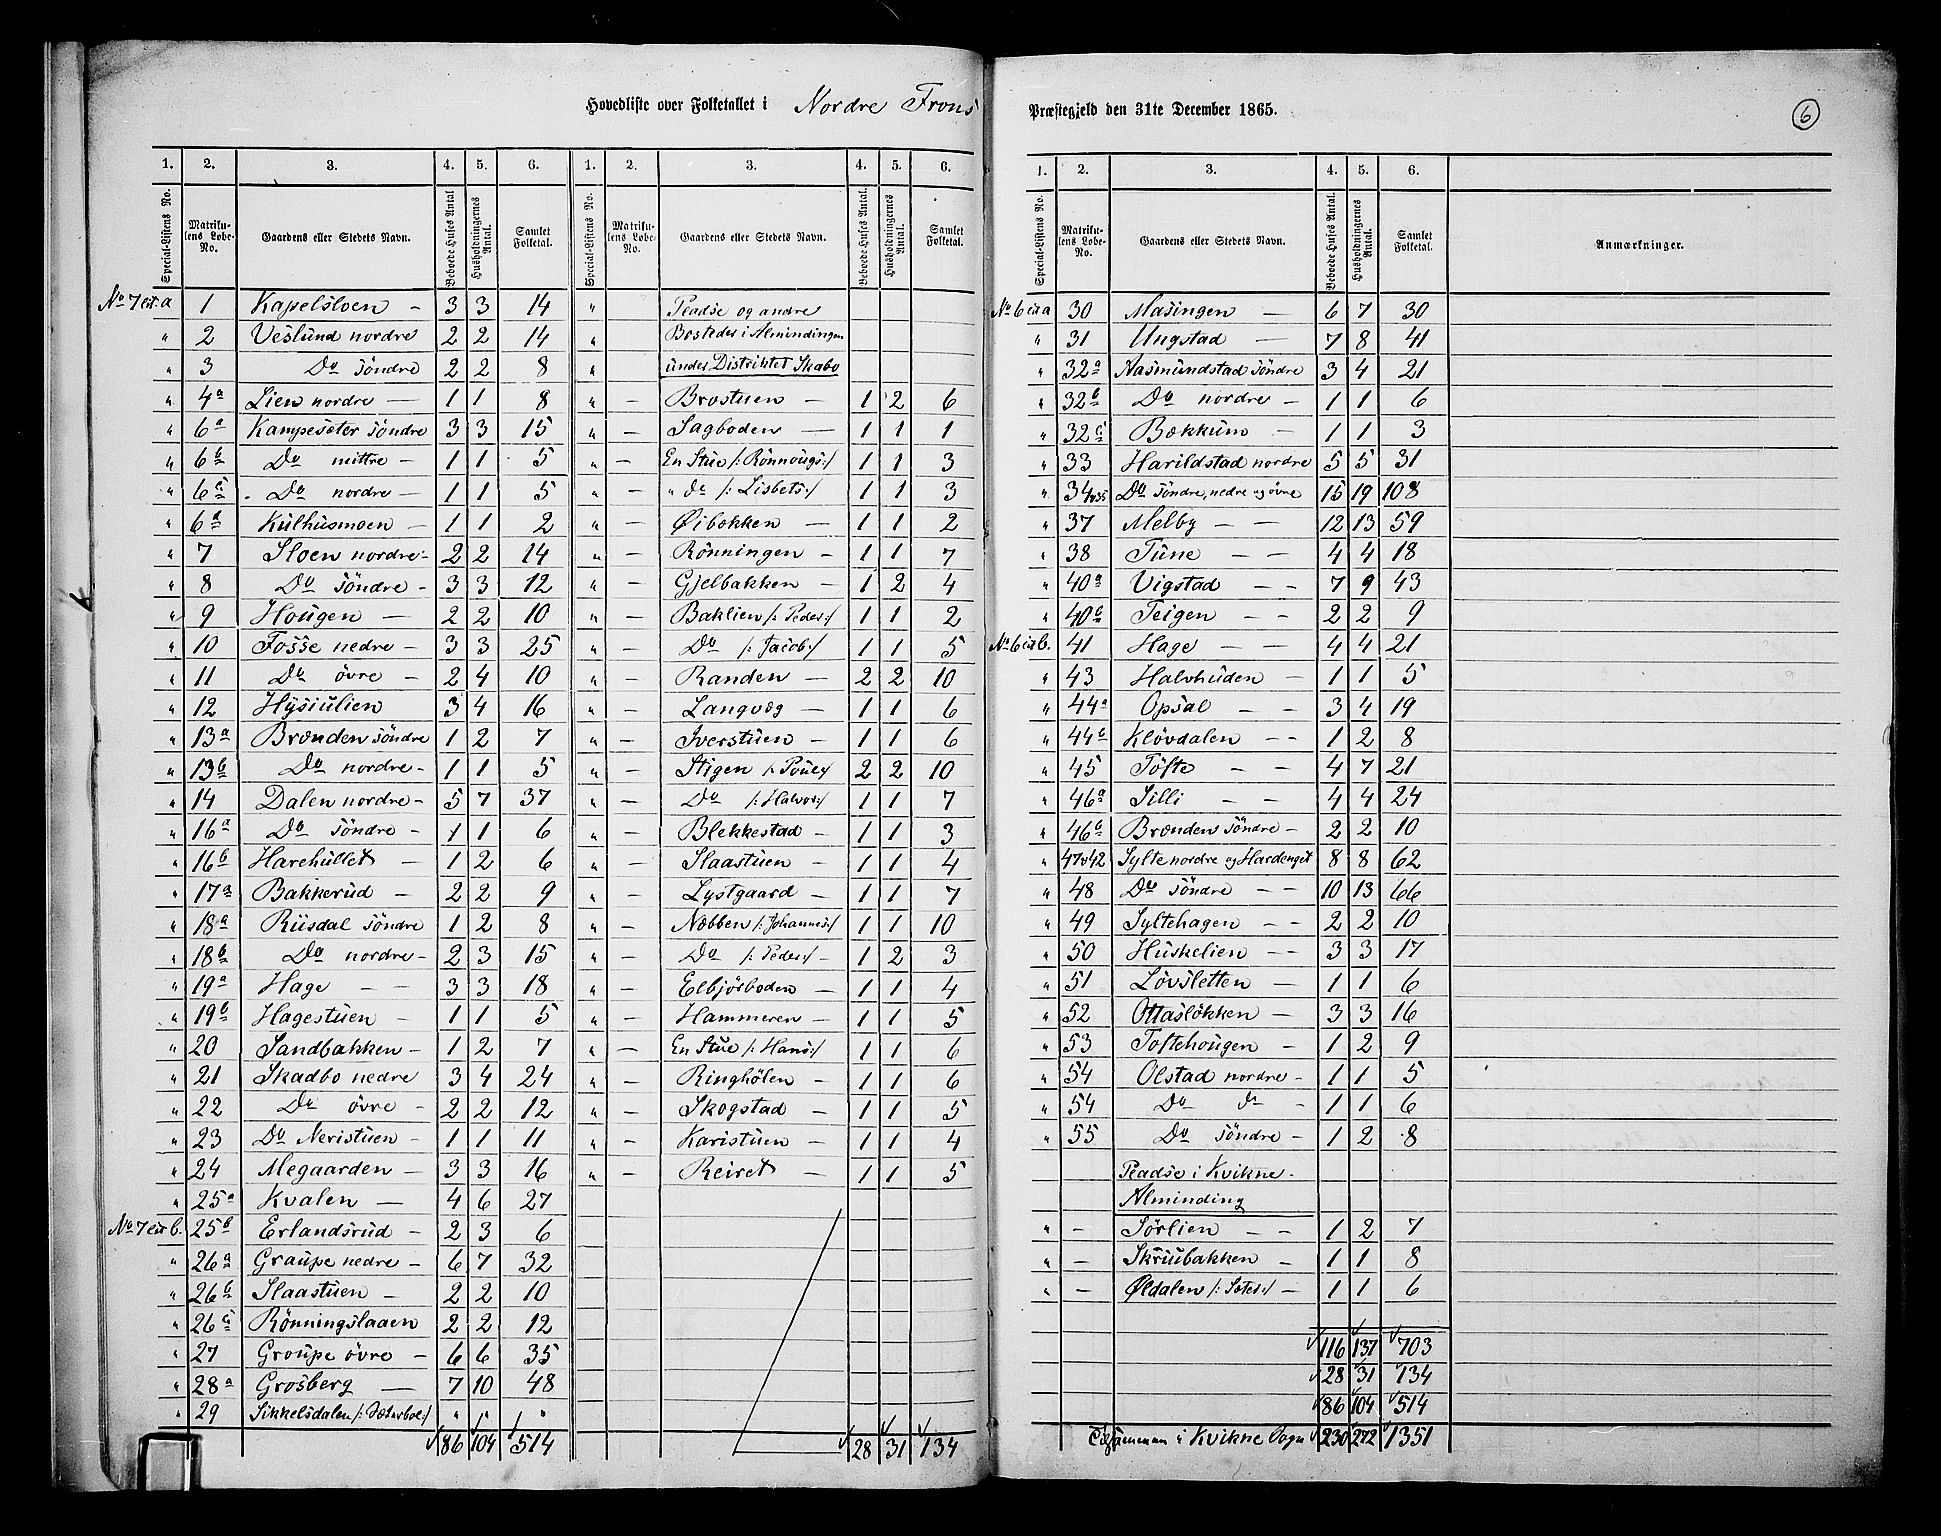 Hovedliste over Folketallet i Nordre Frons Præstegjeld den 31te December 1865.
6
1. 2. 3. 4. 5. 6. 1. 2. 3. 4. 5. 6.
Special-Listens No. Matrikulens Løbe-No. Gaardens eller Stedets Navn. Beboede Huses Antal Husholdningernes Antal. Samlet Folketal. Special-Listens No. Matrikulens Løbe-No. Gaardens eller Stedets Navn. Beboede Huses Antal. Husholdningernes Antal. Samlet Folketal.
No 7 lit. a 1 Kapelsloen - 3 3 14 " Pladse og andre
" 2 Veslund nordre 2 2 14 " Bosteder i Almindingen
" 3 Do söndre 2 2 8 " under Distriktet Skabo
" 4a Lien nordre — 1 1 8 " — Brostuen — 1 2 6
" 6a Kampesæter söndre 3 3 15 " — Sagboden — 1 1 1
" 6b Do mittre — 1 1 5 " — En Stue /: Rönnougs :/ 1 1 3
" 6c Do nordre — 1 1 5 " — " do /: Lisbets :/ 1 1 3
" 6a Kulhusmoen — 1 1 2 " — Øibakken — 1 1 2
" 7 Sloen nordre - 2 2 14 " — Rönningen — 1 1 7
" 8 Do söndre - 3 3 12 " — Gjelbakken — 1 2 4
" 9 Hougen — 2 2 10 " — Baklien /: Peder :/ 1 1 2
" 10 Fosse nedre — 3 3 25 " — Do /: Jacob :/ 1 1 5
" 11 Do övre — 2 4 10 " — Randen — 2 2 10
" 12 Hysiulien 3 4 16 " — Langvæg — 1 1 6
" 13a Brænden söndre 1 2 7 " — Iverstuen — 1 1 6
" 13b Do nordre - 1 1 5 " — Stigen /: Poul :/ 2 2 10
" 14 Dalen nordre - 5 7 37 " — Do /: Halvor :/ 1 1 7
" 16a Do söndre - 1 1 6 " — Blekkestad — 1 1 3
" 16b Harehullet — 1 2 6 " — Slaastuen — 1 1 4
" 17a Bakkerud — 2 2 9 " — Lystgaard — 1 1 7
" 18a Rusdal söndre 1 2 8 " — Nobben /: Johannes :/ 1 1 10
" 18b Do nordre - 2 3 15 " — Do /: Peder :/ — 1 2 3
" 19a Hage — — 3 3 18 " — Elbjörboden — 1 1 4
" 19b Hagestuen — 1 1 5 " — Hammeren — 1 1 5
" 20 Sandbakken — 1 2 7 " — En Stue /: Hans :/ 1 1 6
" 21 Skadbo nedre 3 4 24 " — Ringhölen — 1 1 6
" 22 Do övre - 2 2 12 " — Skogstad — 1 1 5
" 23 Do Neristuen — 1 1 11 " — Karistuen — 1 1 4
" 24 Megaarden — 3 3 16 " — Reiret — 1 1 5
" 25a Kvalen — 4 6 27
No 7 lit b. 25b Erlandsrud — 2 3 6
" 26a Graupe nedre — 6 7 32
" 26b Slaastuen — 2 2 10
" 26c Rönningslaaen 2 2 12
" 27 Groupe övre — 6 6 35
" 28a Grosberg — 7 10 48
" 29 Sikkelsdalen /: Sæterbol :/ " " "
86 104 514 28 31 134
1. 2. 3. 4. 5. 6.
Special-Listens No. Matrikulens Løbe-No. Gaardens eller Stedets Navn. Beboede Huses Antal. Husholdningernes Antal. Samlet Folketal. Anmærkninger.
No 6 lit a 30 Masingen — 6 7 30
" 31 Ungstad — 7 8 41
" 32a Aasmundstad söndre 3 4 21
" 32b Do nordre — 1 1 6
" 32c Bækkum — 1 1 3
" 33 Harildstad nordre 5 5 31
" 34 & 35 Do söndre, nedre og övre 15 19 108
" 37 Melby — — 12 13 59
" 38 Tune — — 4 4 18
" 40a Vigstad — — 7 9 43
" 40b Teigen — — 2 2 9
No 6 lit b. 41 Hage — — 4 4 21
" 43 Halvhuden — 1 1 5
" 44a Opsal — — 3 4 19
" 44b Klövdalen — — 1 2 8
" 45 Töfte — — 4 7 21
" 46a Silli — — 4 4 24
" 46b Brænden söndre - 2 2 10
" 47 & 42 Sylte nordre og Hardenget 8 8 62
" 48 Do söndre — — 10 13 66
" 49 Syltehagen — — 2 2 10
" 50 Huskelien — — 3 3 17
" 51 Lövsletten — 1 1 6
" 52 Ottaslökken — 3 3 16
" 53 Toftehougen — 1 2 9
" 54 Olstad nordre - 1 1 5
" 54 Do do — 1 1 6
" 55 Do söndre — 1 2 8
Pladse i Kvikne
Alminding
" — Sörlien — — 1 2 7
" — Skruibakken — 1 1 8
" — Øldalen /: Sæter :/ — 1 1 6
116 137 703
28 31 134
86 104 514
Tilsammen i Kvikne Sogn 230 272 1351